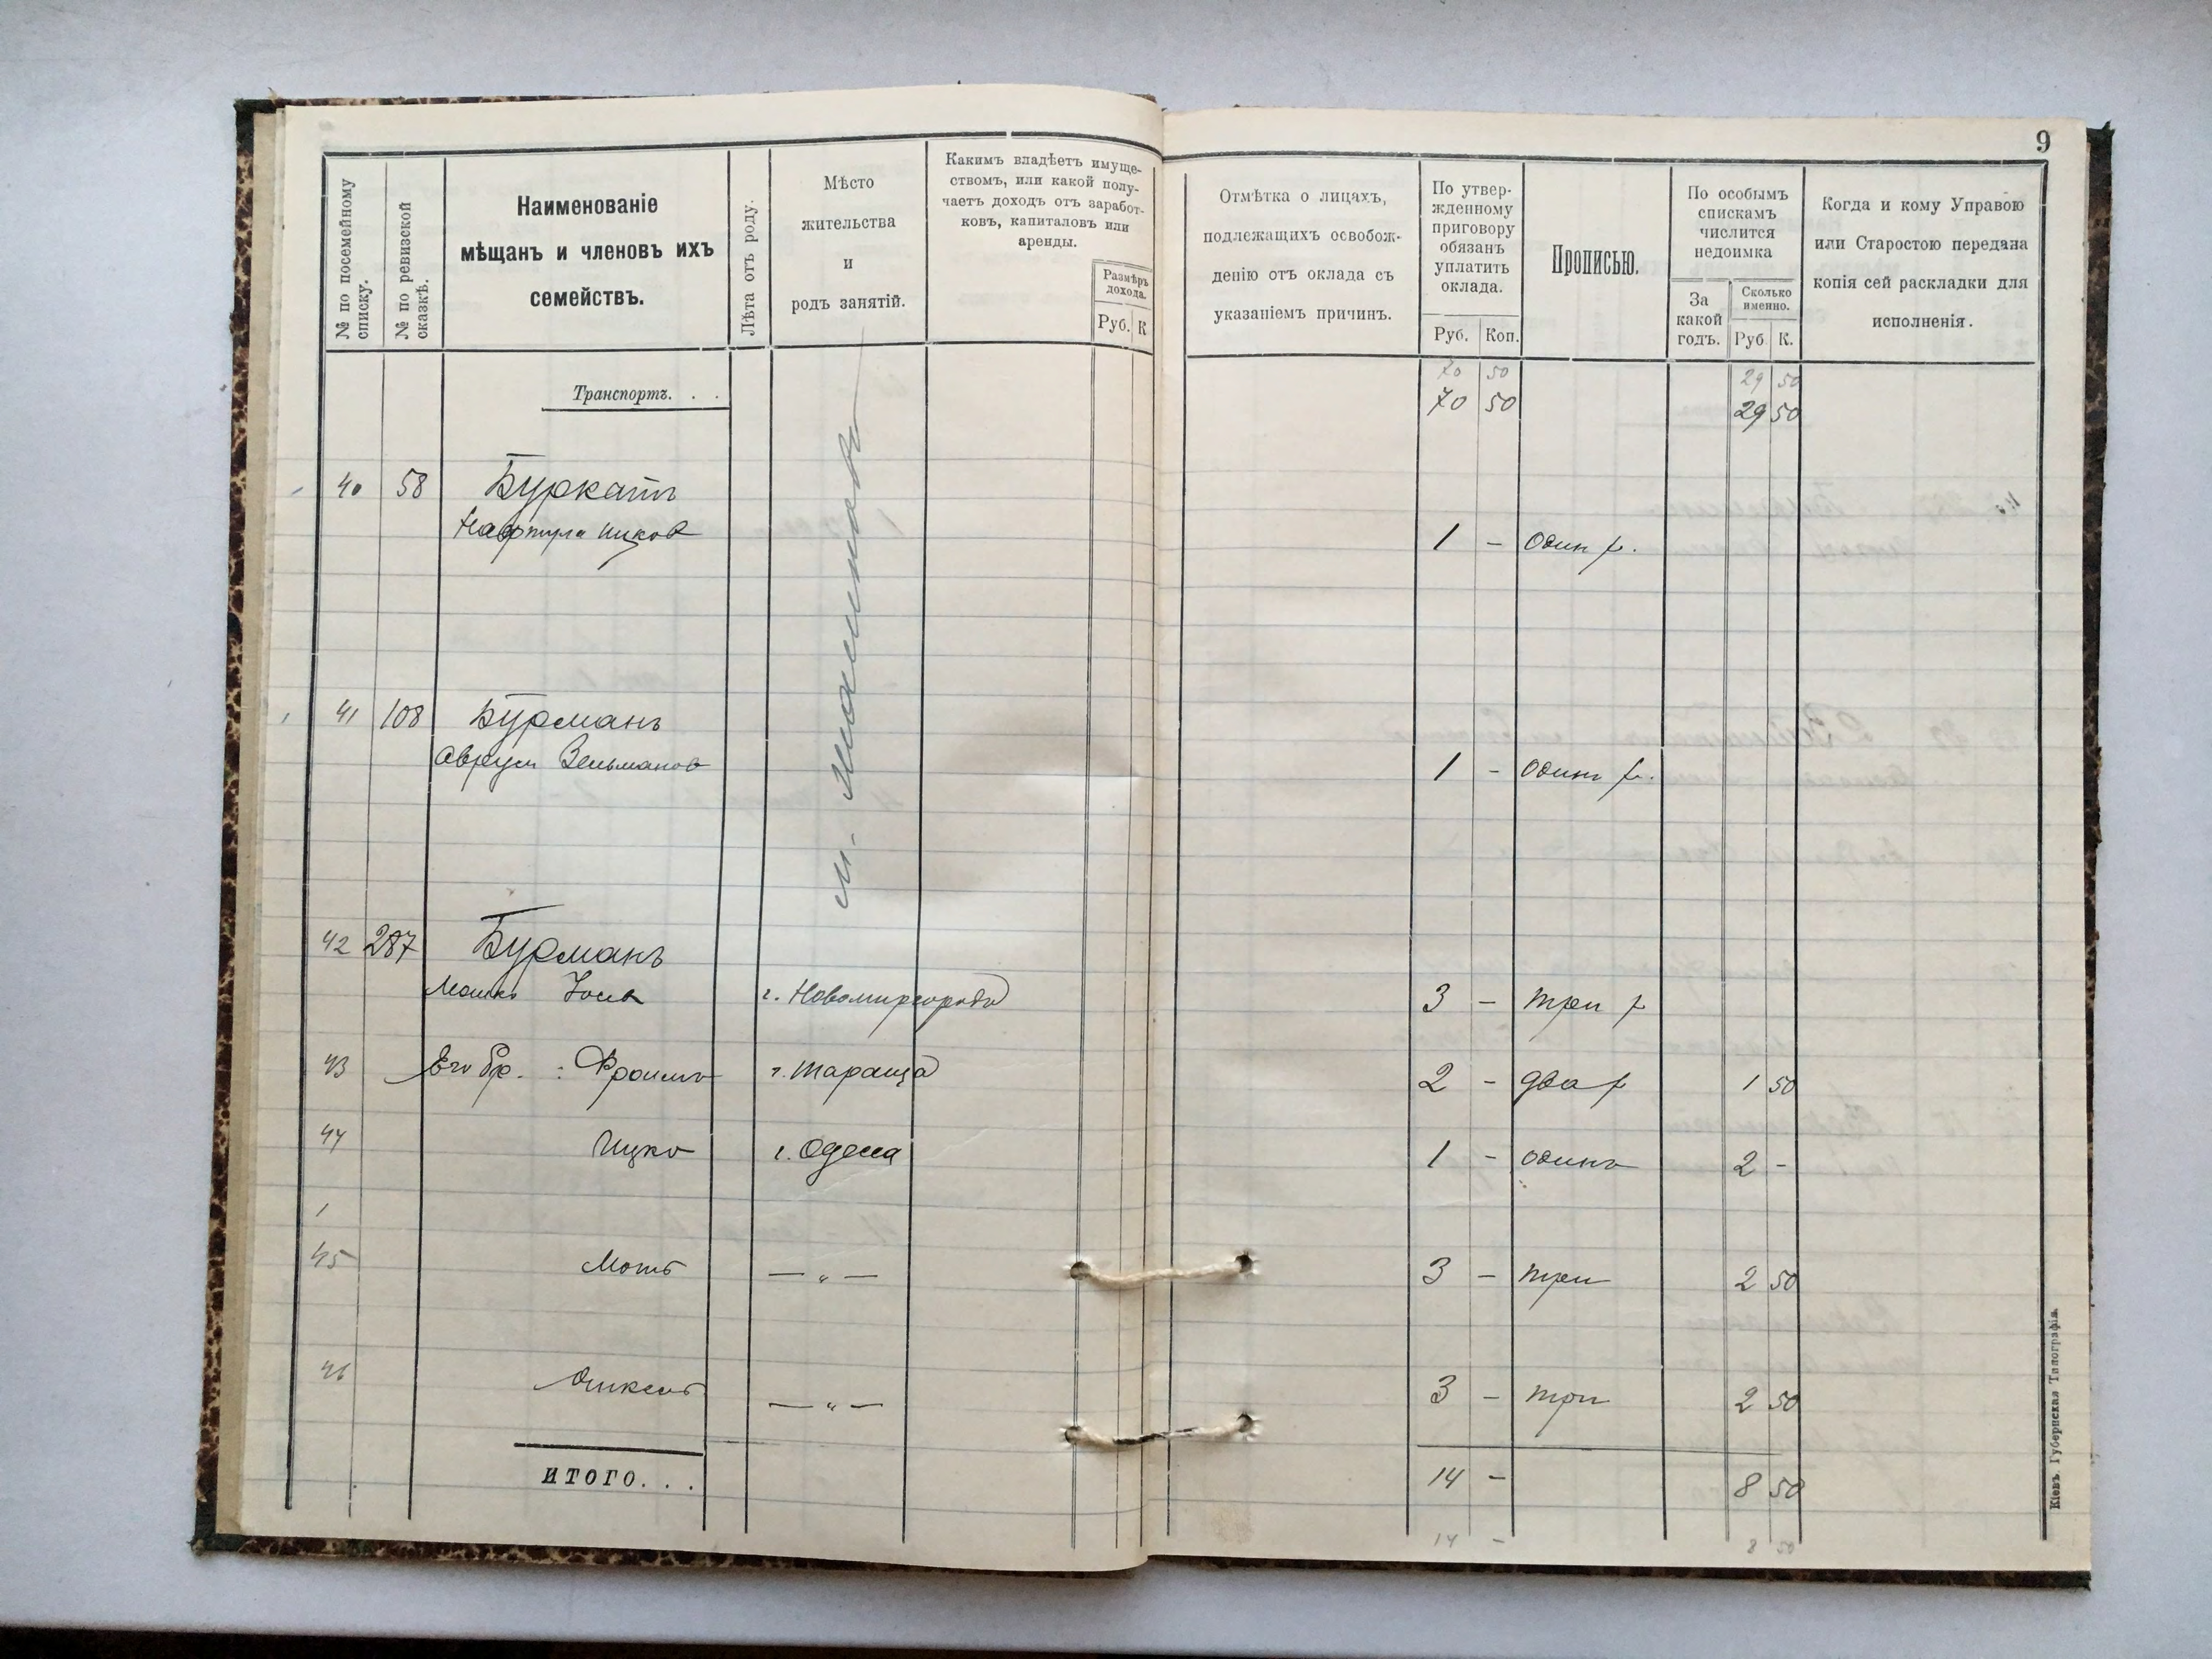 9
№ по посемейному списку.
№ по ревизской сказкѣ.
Наименованіе
мѣщанъ и членовъ ихъ
семействъ.
Лѣта отъ роду.
Мѣсто
жительства
и
родъ занятій.
Какимъ владѣетъ имуще-
ствомъ, или какой полу-
чаетъ доходъ отъ заработ-
ковъ, капиталовъ или
аренды.
Размѣръ
дохода.
Руб. К
Отмѣтка о лицахъ,
подлежащихъ освобож-
денію отъ оклада съ
указаніемъ причинъ.
По утвер-
жденному
приговору
обязанъ
уплатить
оклада.
Руб. Коп.
Прописью.
По особымъ
спискамъ
числится
недоимка
За
какой
годъ.
Сколько
именно.
Руб К.
Когда и кому Управою
или Старостою передана
копія сей раскладки для
исполненія.
70 50 29 50
Транспортъ. . . 70 50 29 50
40 58 Буркатъ
Нафтула Ицков 1 - один р.
41 108 Бурманъ
Аврум Зельманов 1 - одинъ р.
м.
42 287 Бурманъ
Мошко Іось г. Новомиргородъ 3 - три р
43 Его бр. : Фроимъ г. Тараща 2 - два р 1 50
44 Ицко г. Одесса 1 - одинъ 2 -
1
45 Мотъ — „ — 3 - три 2 50
46 — „ — 3 - три 2 50
ИТОГО. . . 14 - 8 50
14 - 8 50
Кіевъ. Губернская Типографія.